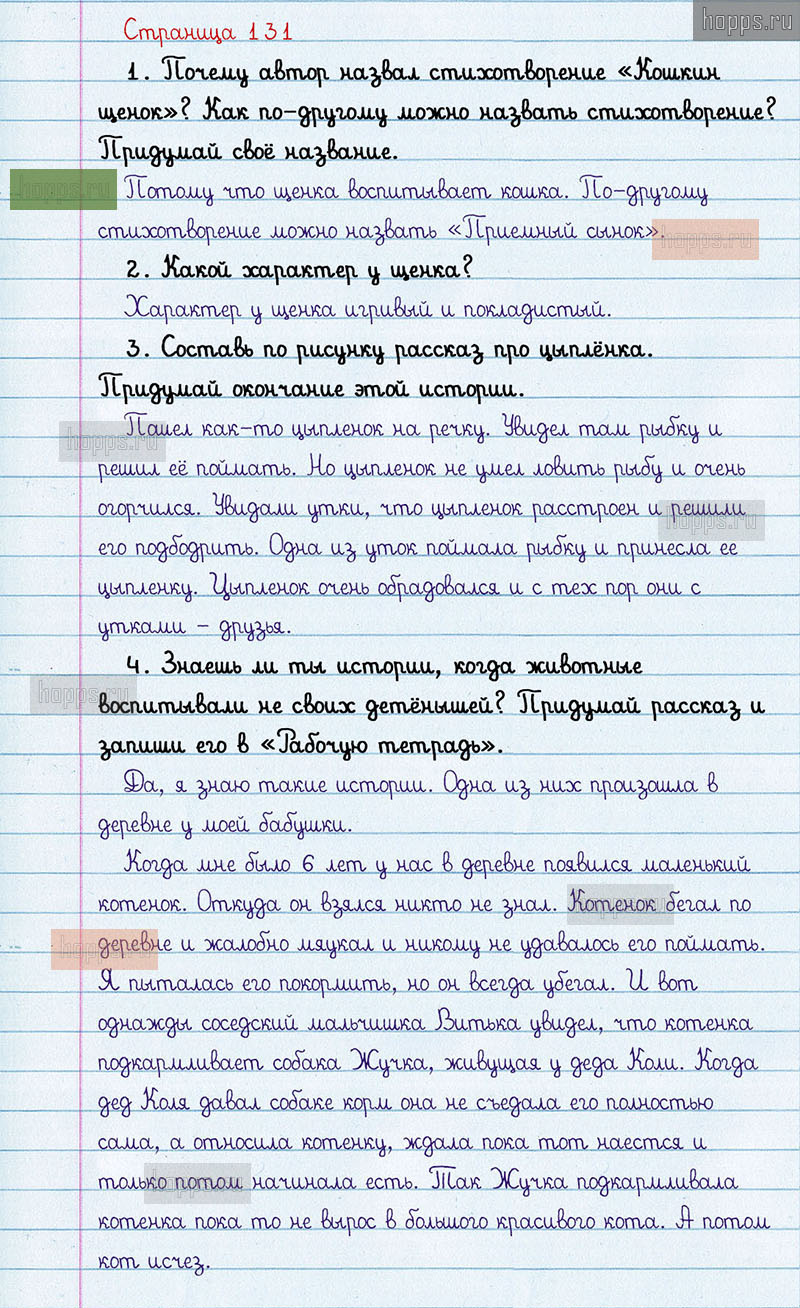 hopps.ru
Страница 131
1. Почему автор назвал стихотворение «Кошкин
щенок»? Как по-другому можно назвать стихотворение?
Придумай своё название.
hopps.ru
Потому что щенка воспитывает кошка. По-другому
стихотворение можно назвать «Приемный сынок».
hopps.ru
2. Какой характер у щенка?
Характер у щенка игривый и покладистый.
3. Составь по рисунку рассказ про цыплёнка.
Придумай окончание этой истории.
Пошел как-то цыпленок на речку. Увидел там рыбку и
hopps.ru
решил её поймать. Но цыпленок не умел ловить рыбу и очень
огорчился. Увидали утки, что цыпленок расстроен и решили
hopps.ru
его подбодрить. Одна из уток поймала рыбку и принесла ее
цыпленку. Цыпленок очень обрадовался и с тех пор они с
утками – друзья.
4. Знаешь ли ты истории, когда животные
hopps.ru
воспитывали не своих детёнышей? Придумай рассказ и
запиши его в «Рабочую тетрадь».
Да, я знаю такие истории. Одна из них произошла в
деревне у моей бабушки.
Когда мне было 6 лет у нас в деревне появился маленький
котенок. Откуда он взялся никто не знал. Котенок бегал по
hopps.ru
деревне и жалобно мяукал и никому не удавалось его поймать.
hopps.ru
Я пыталась его покормить, но он всегда убегал. И вот
однажды соседский мальчишка Витька увидел, что котенка
подкармливает собака Жучка, живущая у деда Коли. Когда
дед Коля давал собаке корм она не съедала его полностью
сама, а относила котенку, ждала пока тот наестся и
только потом начинала есть. Так Жучка подкармливала
hopps.ru
котенка пока то не вырос в большого красивого кота. А потом
кот исчез.